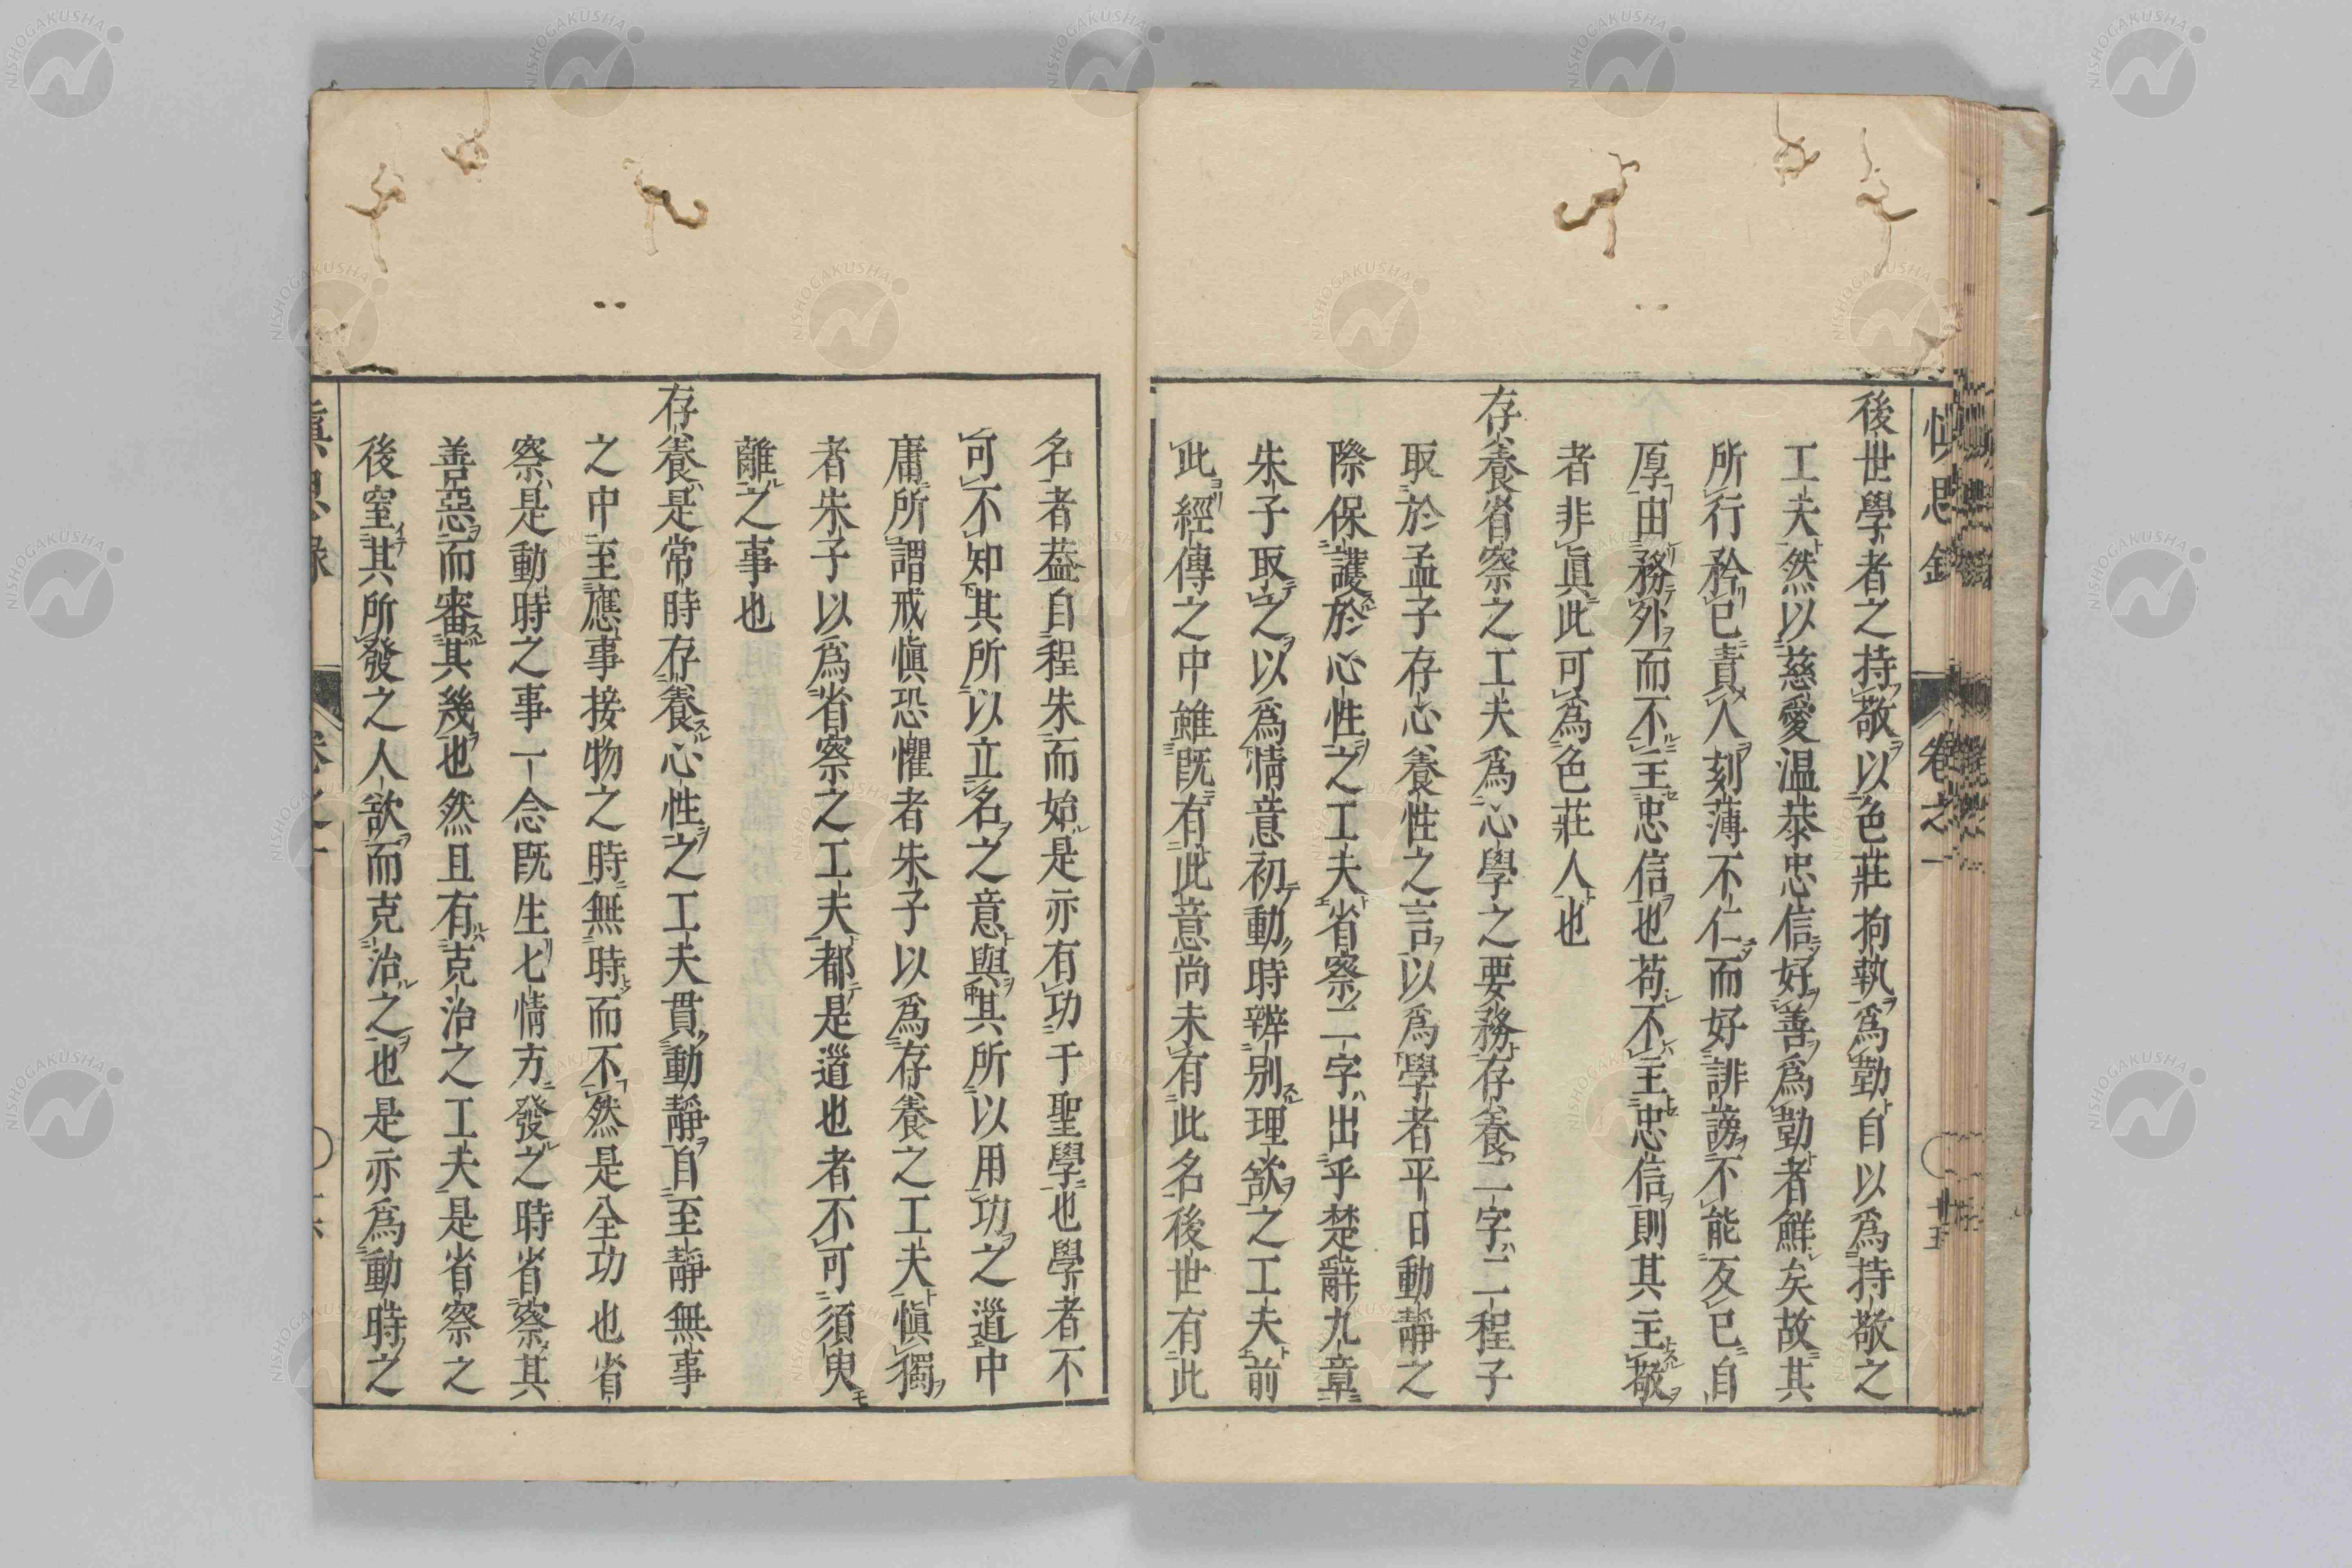 慎思録
卷之一
後世學者之持敬以色莊拘執爲勤自以爲持敬之
工夫然以慈愛温恭忠信好善爲勤者鮮矣故其
所行矜已責人刻薄不仁而好誹謗不能反已自
厚由務外而不主忠信也苟不主忠信則其主敬
者非眞此可爲色莊人也
存養省察之工夫爲心學之要務存養二字二程子
取於孟子存心養性之言以爲學者平日動靜之
際保護於心性之工夫省察二字出乎楚辭九章
朱子取之以爲情意初動時辨別理欲之工夫前
此經傳之中雖既有此意尚未有此名後世有此
名者葢自程朱而始是亦有功于聖學也學者不
可不知其所以立名之意與其所以用功之道中
庸所謂戒慎恐懼者朱子以爲存養之工夫慎獨
者朱子以爲省察之工夫都是道也者不可須臾
離之事也
存養是常時存養心性之工夫貫動靜自至靜無事
之中至應事接物之時無時而不然是全功也省
察是動時之事一念既生七情方發之時省察其
善惡而審其幾也然且有克治之工夫是省察之
後窒其所發之人欲而克治之也是亦爲動時之
NISHOGAKUSHA